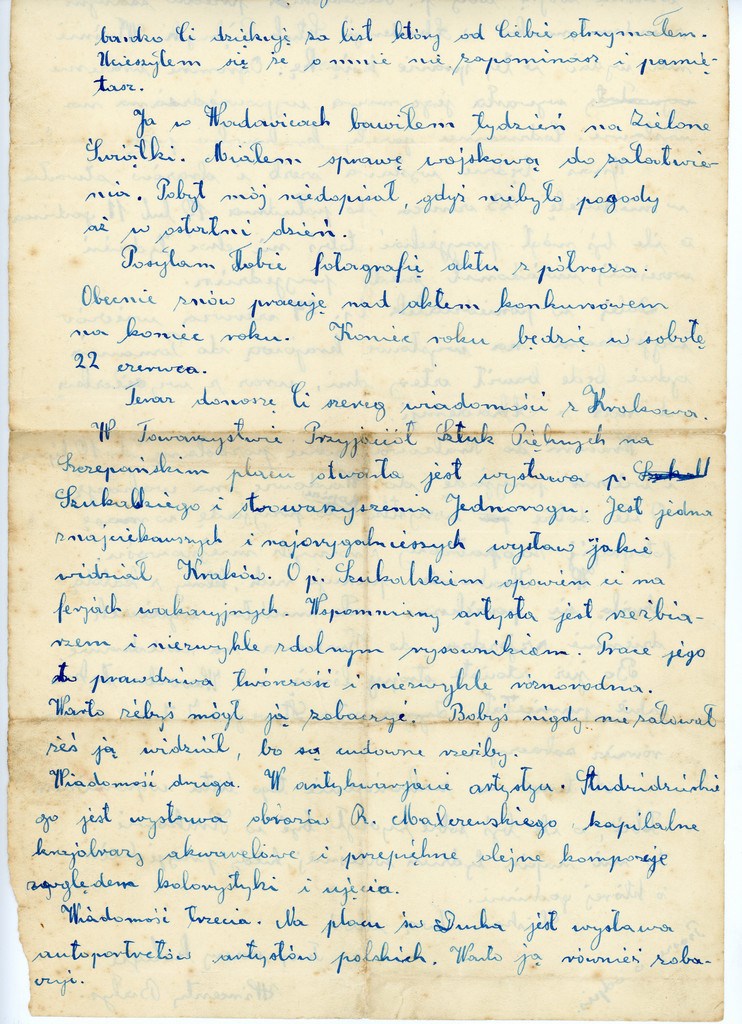 bardzo Ci dziękuję za list który od Ciebie otrzymałem.
Ucieszyłem się że o mnie nie zapominasz i pamię-
tasz.
Ja w Wadowicach bawiłem tydzień na Zielone
Świątki. Miałem sprawę wojskową do załatwie-
nia. Pobyt mój niedopisał, gdyż niebyło pogody
aż w ostatni dzień.
Posyłam Tobie fotografię aktu z półrocza.
Obecnie znów pracuję nad aktem konkursowem
na koniec roku. Koniec roku będzię w sobotę
22 czerwca.
Teraz donoszę Ci szereg wiadomości z Krakowa.
W Towarzystwie Przyjaciół Sztuk Pięknych na
Szczepańskim placu otwarta jest wystawa p.
Szukalskiego i stowarzyszenia Jednorogu. Jest jedna
znajciekawszych i najorygalnieszych wystaw jakie
widział Kraków. O p. Szukalskiem opowiem ci na
ferjach wakacyjnych. Wspomniany artysta jest rzeźbia-
rzem i niezwykle zdolnym rysownikiem. Prace jego
to prawdziwa twórczość i niezwykle różnorodna.
Warto żebyś mógł ją zobaczyć. Bobyś nigdy nie żałował
żeś ją widział, bo są cudowne rzeźby.
Wiadomość druga. W antykwarjacie artystycz. Studzidzińskie
go jest wystawa obrazów R. Malczewskiego kapitalne
krajobrazy akwarelowe i przepiękne olejne kompozycje
względem kolorystyki i ujęcia.
Wiadomość trzecia. Na placu św Ducha jest wystawa
autoportretów artystów polskich. Warto ją również zoba-
czyć.